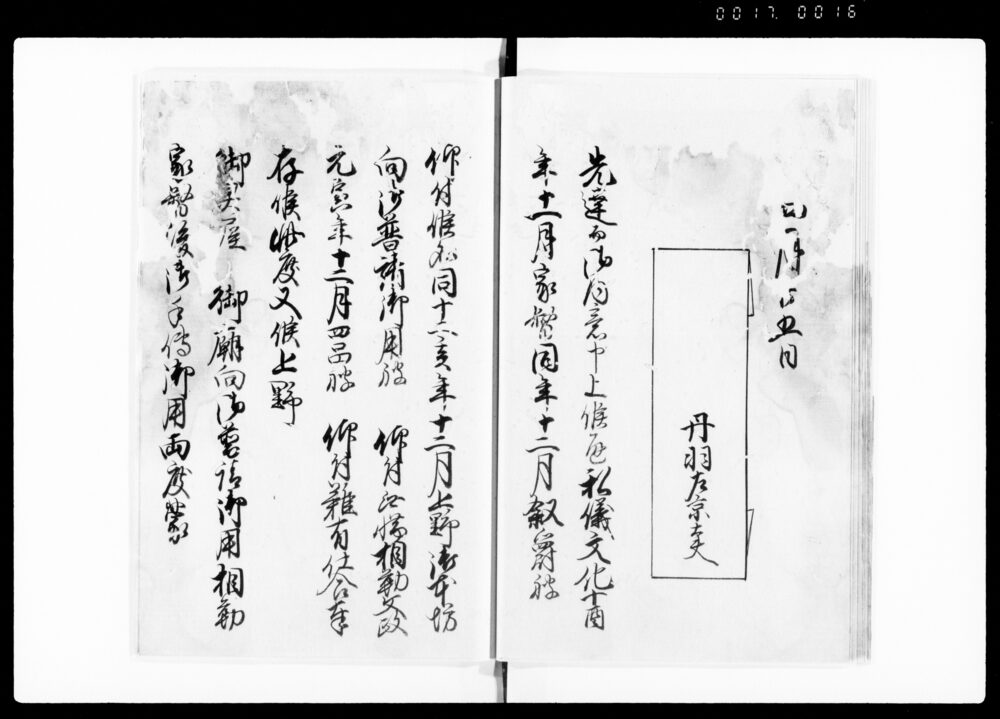 0017. 0016
四月廿五日
丹羽左京大夫
先達而御内意申上候処私儀文化十酉
年十一月家督同年十二月叙爵被
仰付候而同十二亥年十二月上野御本坊
向御普請御用被 仰付無滞相勤文政
元寅年十二月四品被 仰付難有仕合奉
存候此度又候上野
御霊屋 御廟向御普請御用相勤
家督後御手伝御用両度蒙